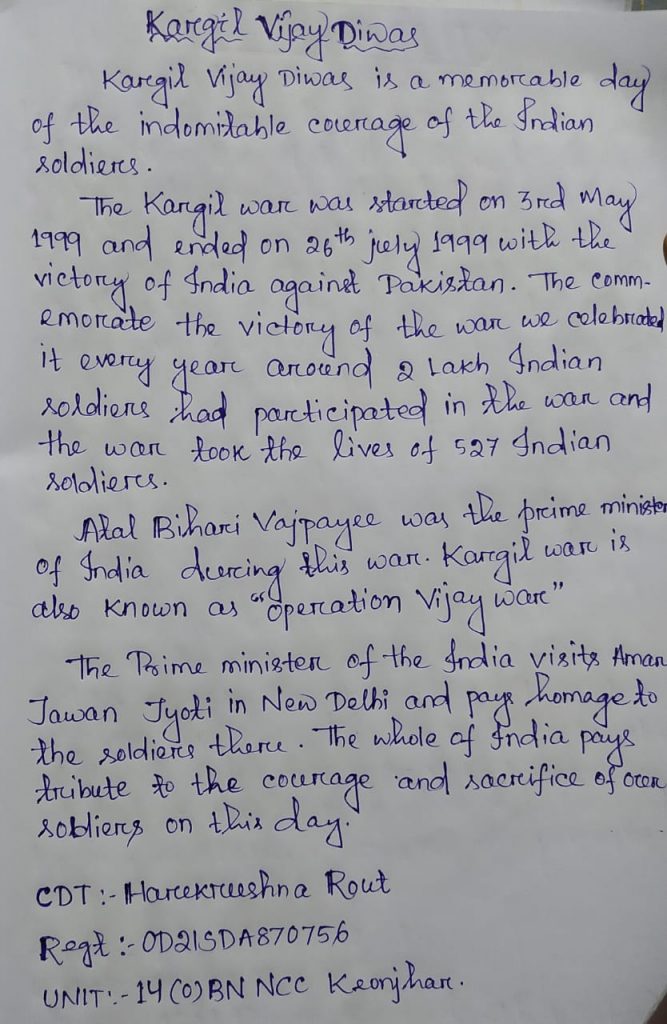 Kargil Vijay Diwas
Kargil Vijay Diwas is a memorable day
of the indomitable courage of the Indian
soldiers.
The Kargil war was started on 3rd May
1999 and ended on 26th july 1999 with the
victory of India against Pakistan. The comm-
emorate the victory of the war we celebrated
it every year around 2 Lakh Indian
soldiers had participated in the war and
the war took the lives of 527 Indian
soldiers.
Atal Bihari Vajpayee was the prime minister
of India during this war. Kargil war is
also known as "operation Vijay war"
The Prime minister of the India visits Amar
Jawan Jyoti in New Delhi and pays homage to
the soldiers there. The whole of India pays
tribute to the courage and sacrifice of our
soldiers on this day.
CDT :- Harekrushna Rout
Regt :- OD21SDA870756
UNIT :- 14 (O) BN NCC Keonjhar.